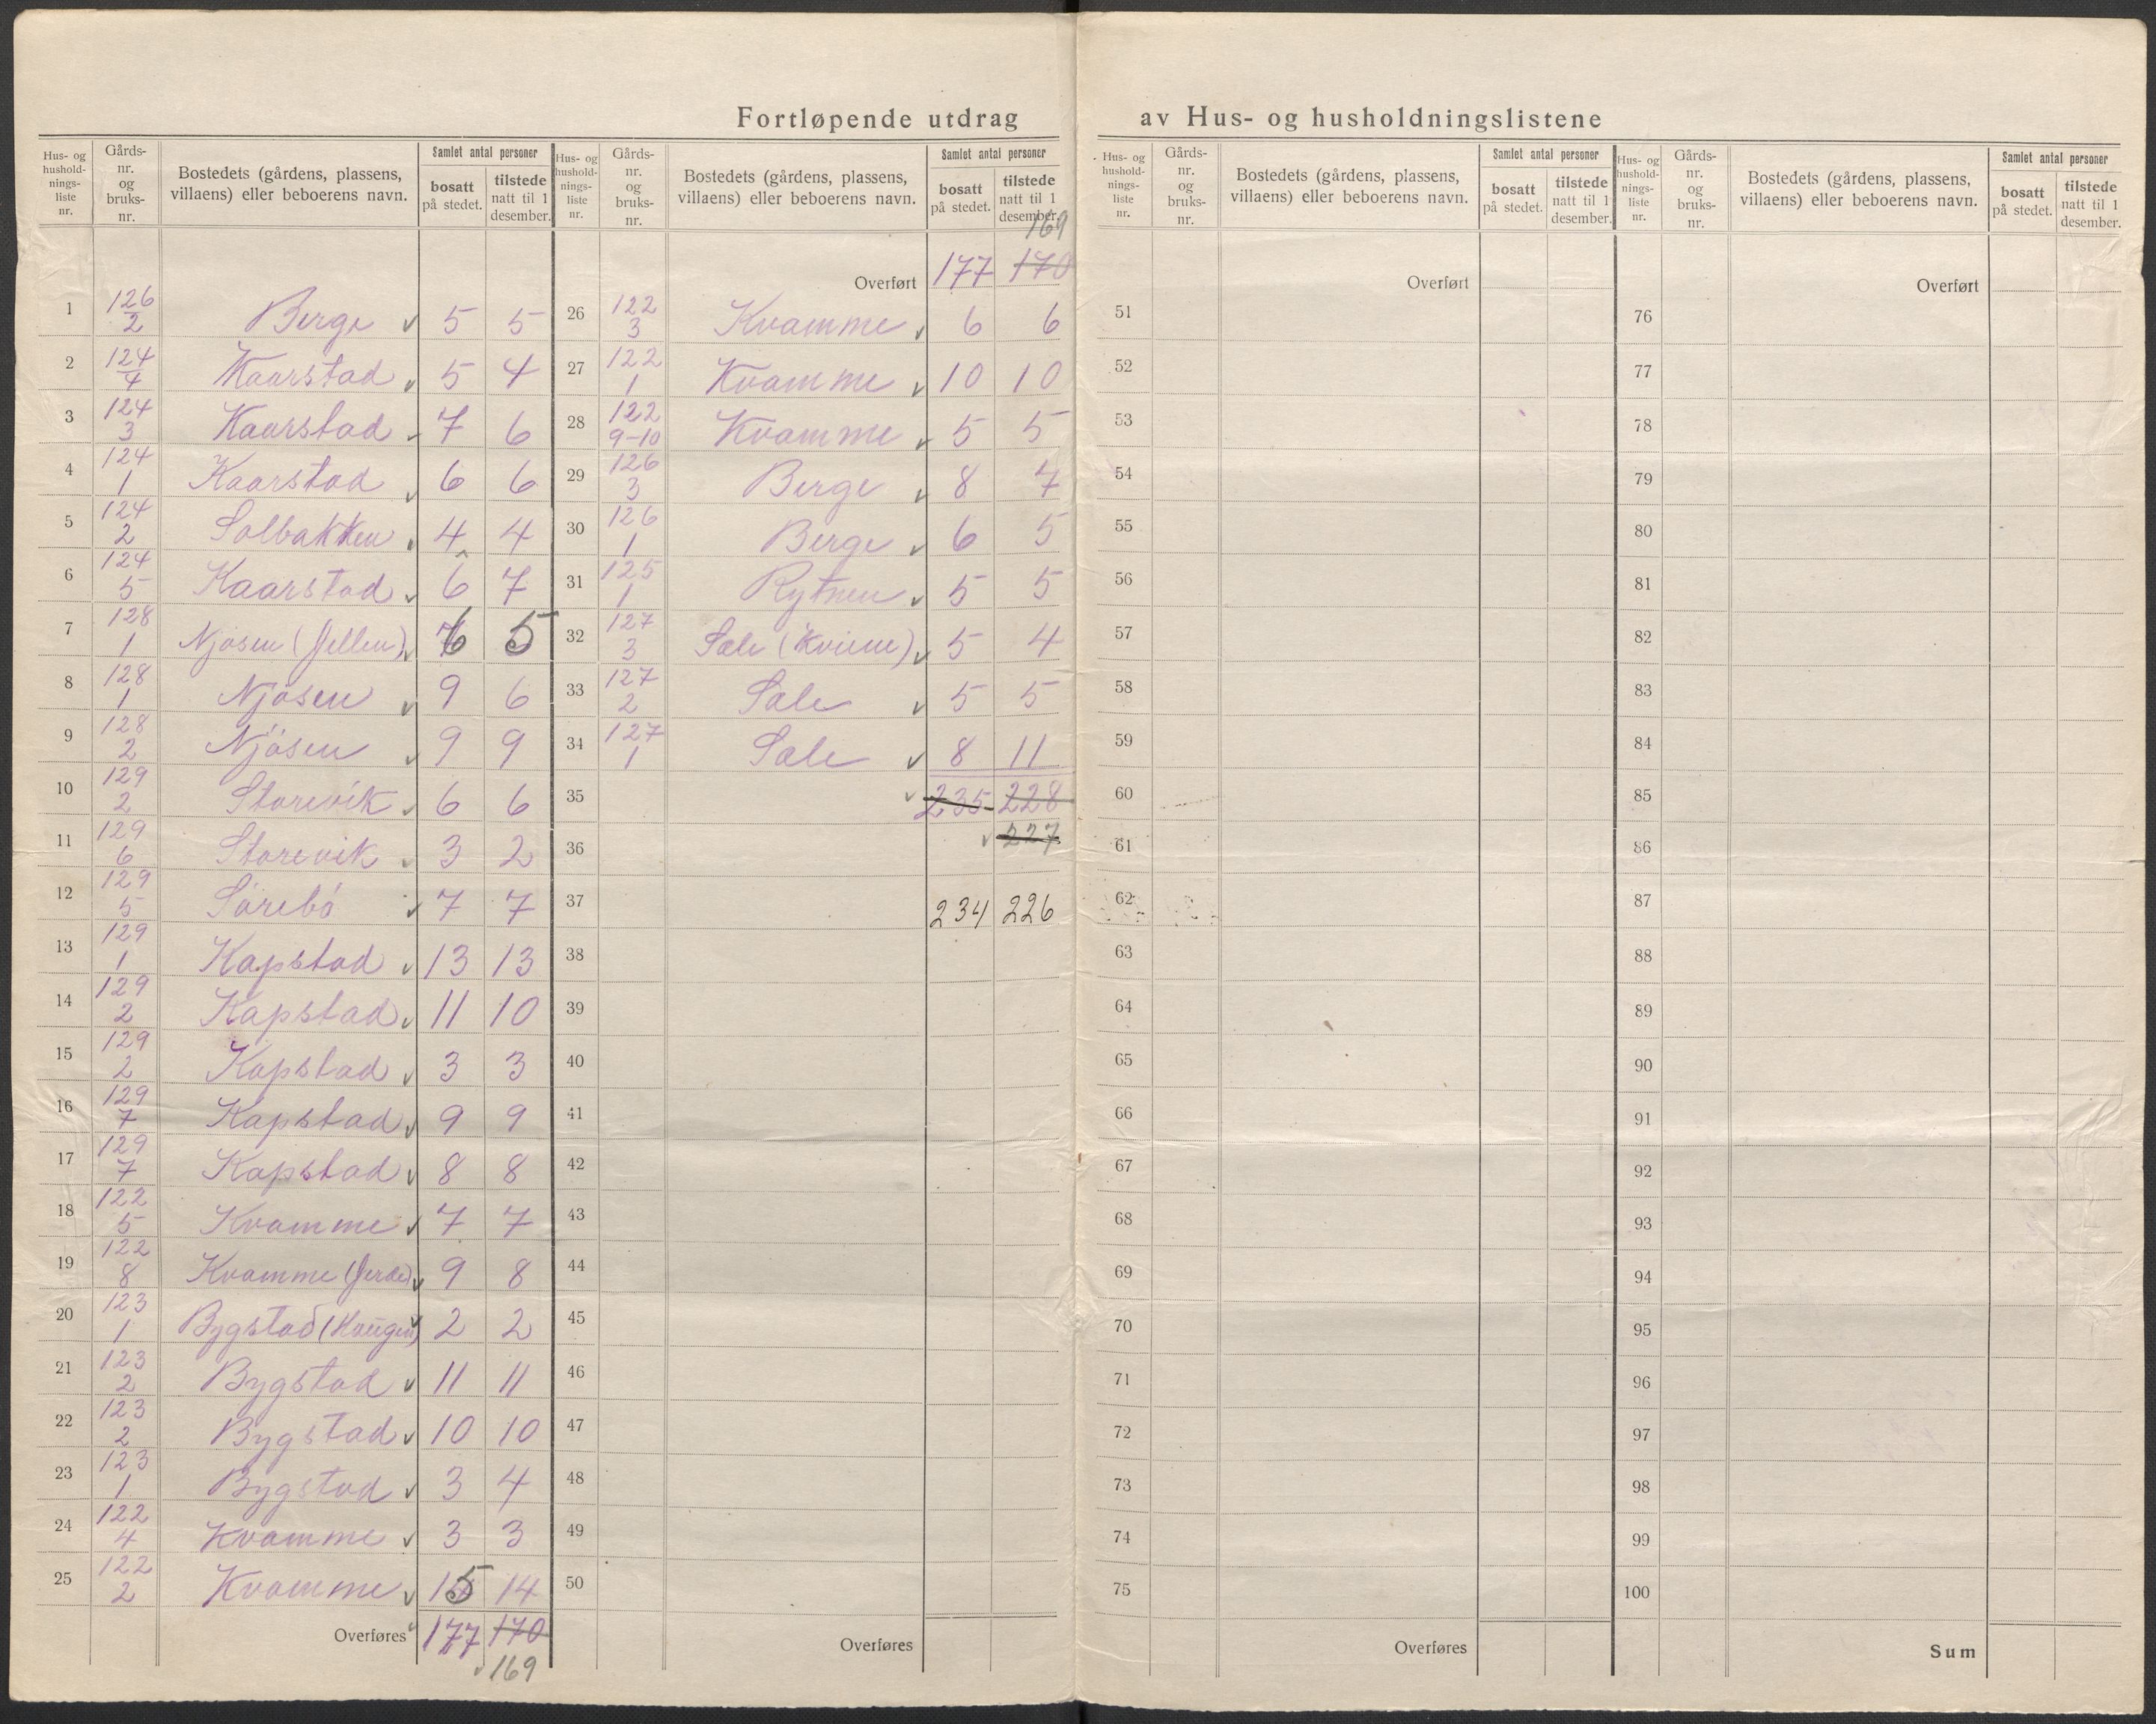 Fortløpende utdrag av Hus- og husholdningslistene
Hus- og hushold-nings-liste nr. Gårds-nr. og bruks-nr. Bostedets (gårdens, plassens, villaens) eller beboerens navn. Samlet antal personer bosatt på stedet. tilstede natt til 1 desember.
1 126/2 Berge v 5 5
2 124/4 Kaarstad v 5 4
3 124/3 Kaarstad v 7 6
4 124/1 Kaarstad v 6 6
5 124/2 Solbakken v 4 4
6 124/5 Kaarstad v 6 7
7 128/1 Njøsen (Jellen) v 6 5
8 128/1 Njøsen v 9 6
9 128/2 Njøsen v 9 9
10 129/2 Storevik v 6 6
11 129/6 Storevik v 3 2
12 129/5 Sörebö v 7 7
13 129/1 Kapstad v 13 13
14 129/2 Kapstad v 11 10
15 129/2 Kapstad v 3 3
16 129/7 Kapstad v 9 9
17 129/7 Kapstad v 8 8
18 122/5 Kvamme v 7 7
19 122/8 Kvamme (Jerde) v 9 8
20 123/1 Bygstad (Haugen) v 2 2
21 123/2 Bygstad v 11 11
22 123/2 Bygstad v 10 10
23 123/1 Bygstad v 3 4
24 122/4 Kvamme v 3 3
25 122/2 Kvamme v 15 14
Overføres 177 170
v 169
Hus- og hushold-nings-liste nr. Gårds-nr. og bruks-nr. Bostedets (gårdens, plassens, villaens) eller beboerens navn. Samlet antal personer bosatt på stedet. tilstede natt til 1 desember.
169
Overført 177 170
26 122/3 Kvamme v 6 6
27 122/1 Kvamme v 10 10
28 122/9-10 Kvamme v 5 5
29 126/3 Berge v 8 7
30 126/1 Berge v 6 5
31 125/1 Rytnen v 5 5
32 127/3 Sæle (Kviene) v 5 4
33 127/2 Sæle v 5 5
34 127/1 Sæle v 8 11
35 v 235 228
36 v 227
37 234 226
38
39
40
41
42
43
44
45
46
47
48
49
50
Overføres
Hus- og hushold-nings-liste nr. Gårds-nr. og bruks-nr. Bostedets (gårdens, plassens, villaens) eller beboerens navn. Samlet antal personer bosatt på stedet. tilstede natt til 1 desember.
Overført
51
52
53
54
55
56
57
58
59
60
61
62
63
64
65
66
67
68
69
70
71
72
73
74
75
Overføres
Hus- og hushold-nings-liste nr. Gårds-nr. og bruks-nr. Bostedets (gårdens, plassens, villaens) eller beboerens navn. Samlet antal personer bosatt på stedet. tilstede natt til 1 desember.
Overført
76
77
78
79
80
81
82
83
84
85
86
87
88
89
90
91
92
93
94
95
96
97
98
99
100
Sum